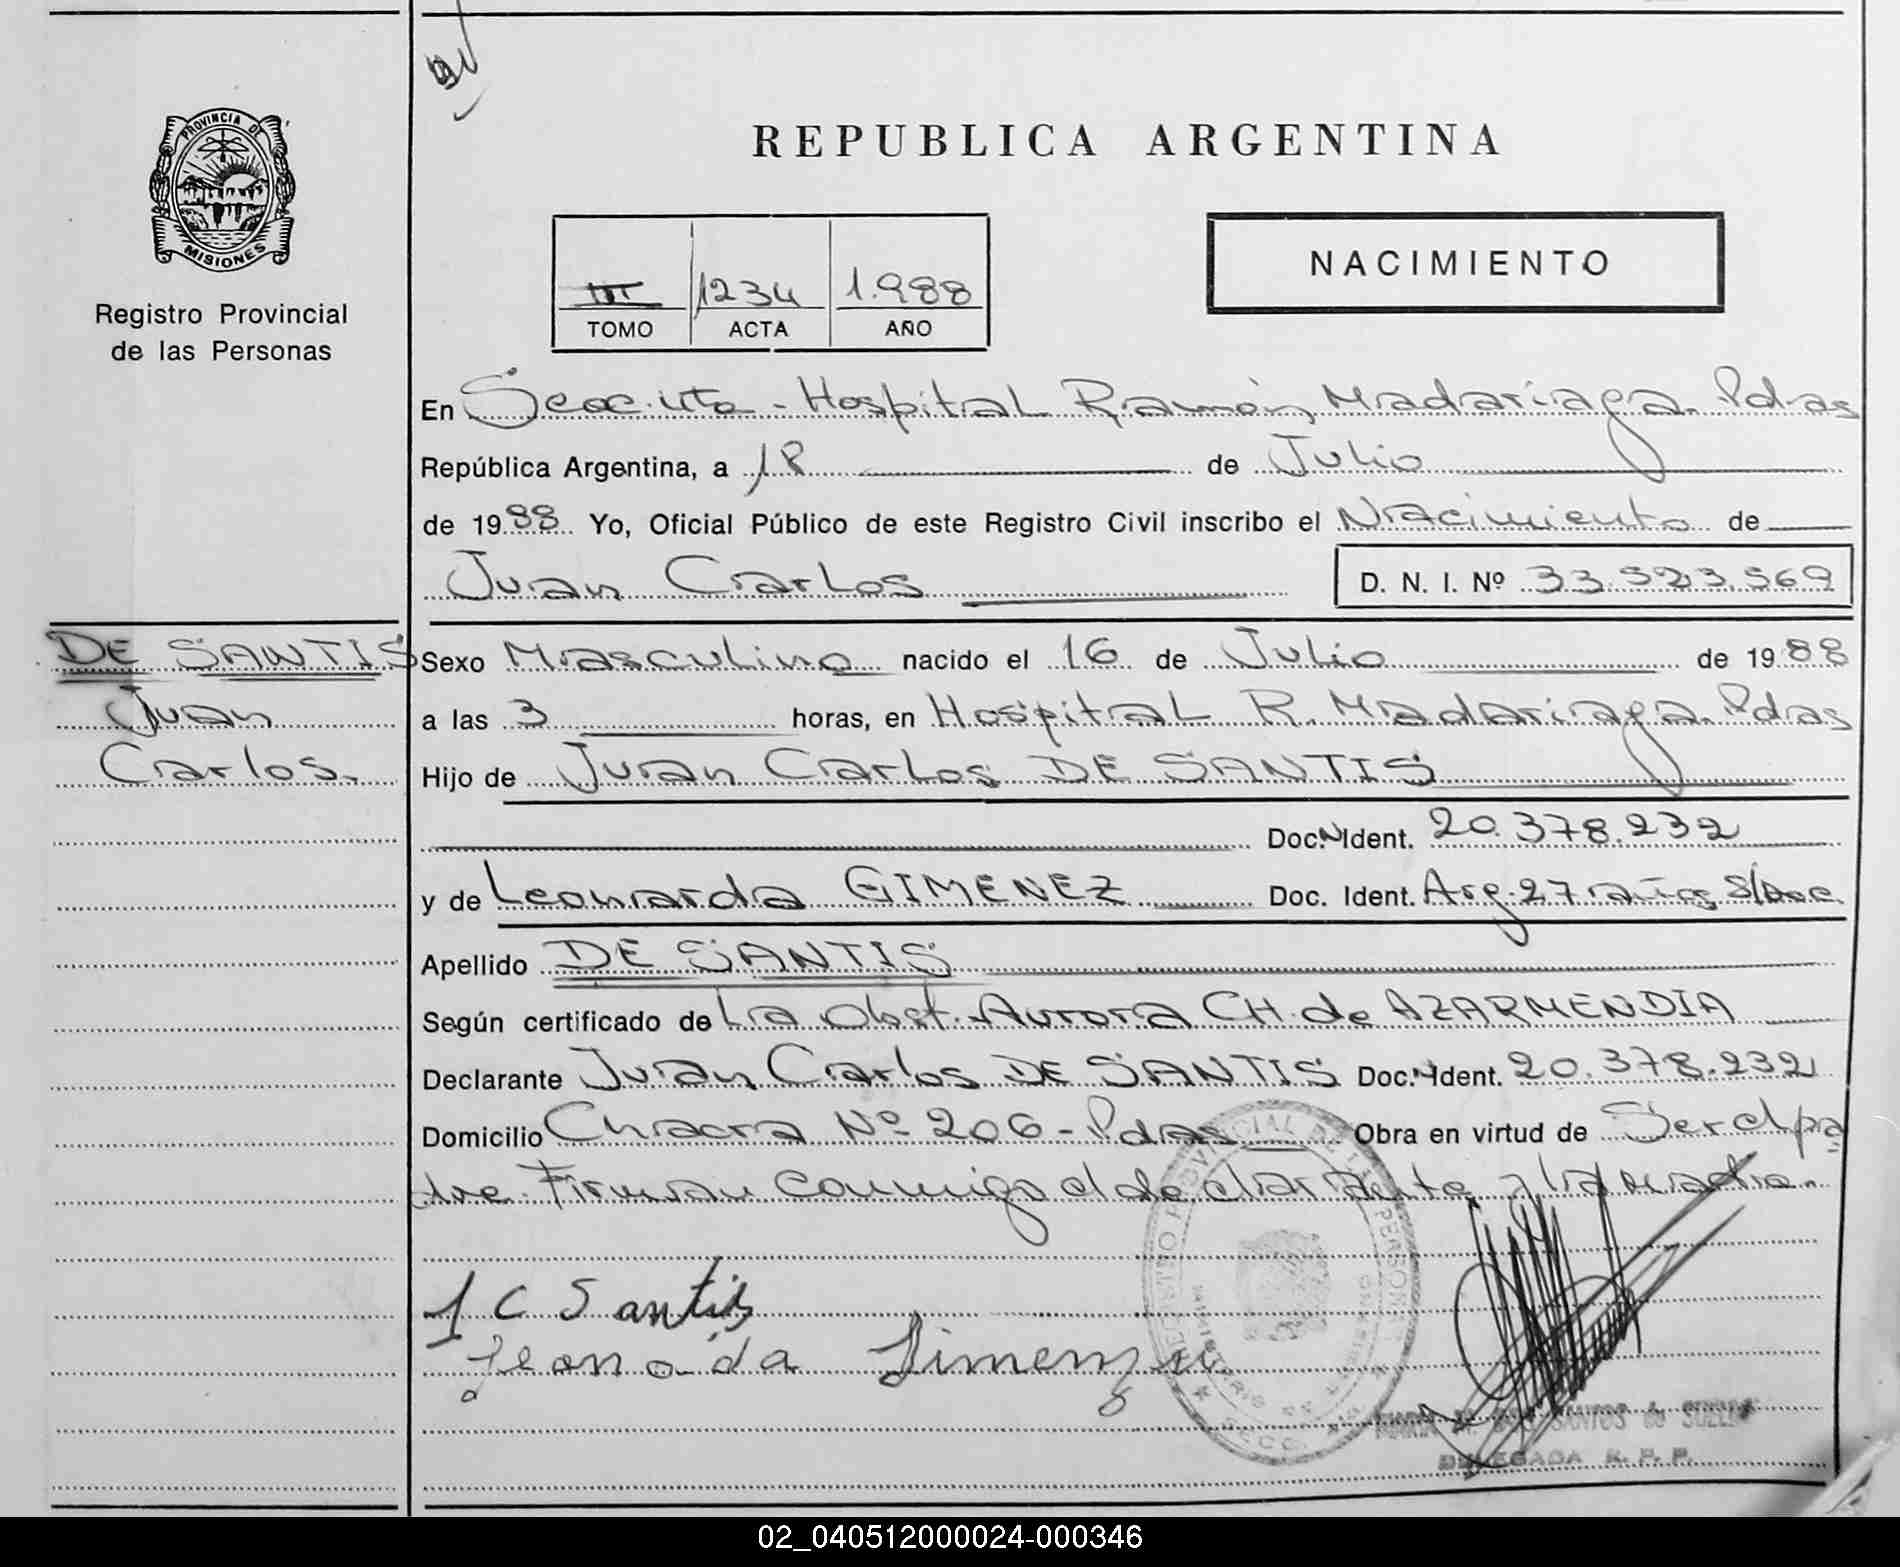 PROVINCIA DE
MISIONES
Registro Provincial
de las Personas
REPUBLICA ARGENTINA
III 1234 1.988
TOMO ACTA AÑO
NACIMIENTO
En Secc. - Hospital Ramón Madariaga. Pdas
República Argentina, a 18 de Julio
de 1988 Yo, Oficial Público de este Registro Civil inscribo el Nacimiento de
Juan Carlos D. N. I. Nº 33.523.569
DE SANTIS
Juan
Carlos.
Sexo Masculino nacido el 16 de Julio de 1988
a las 3 horas, en Hospital R. Madariaga. Pdas
Hijo de Juan Carlos DE SANTIS
Doc. N Ident. 20.378.232
y de Leonarda GIMENEZ Doc. Ident. Arg. 27 años S/Doc.
Apellido DE SANTIS
Según certificado de La Obst. Aurora CH. de AZARMENDIA
Declarante Juan Carlos DE SANTIS Doc. N Ident. 20.378.232
Domicilio Chacra Nº 206 - Pdas Obra en virtud de Ser el pa
dre. Firman conmigo el declarante y la madre.
J C Santis
Leonada Jimenez
SANTOS de
DELEGADA R. P. P.
02_040512000024-000346